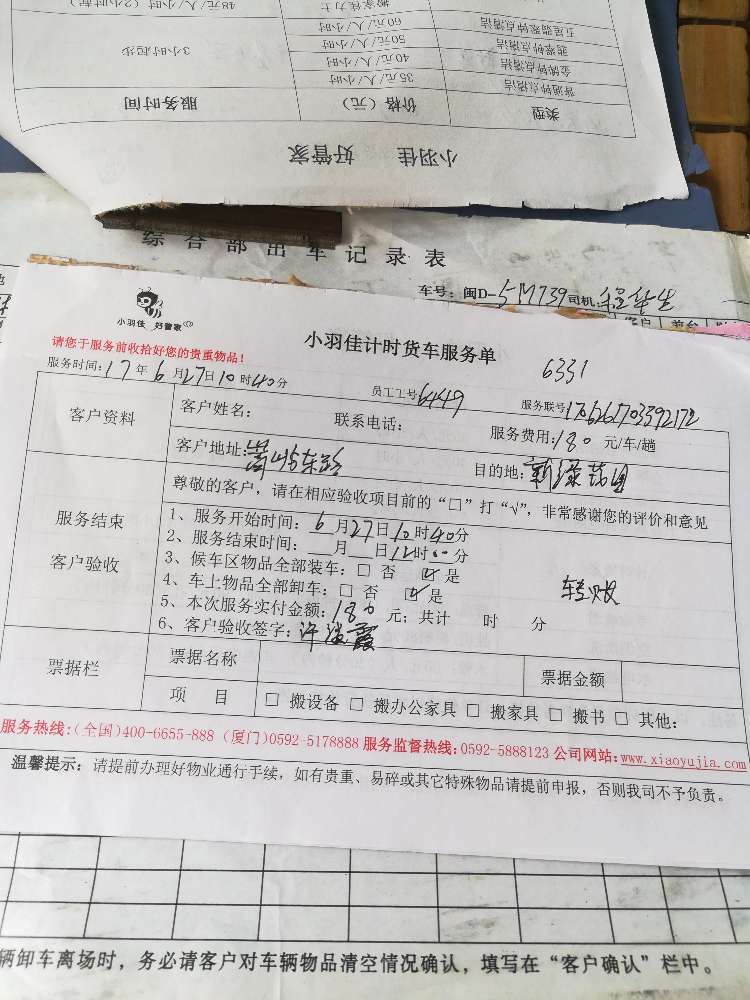 48元/人/小时(2小时起)
五星翡翠钟点清洁 60元/人/小时
翡翠钟点清洁 50元/人/小时
金牌钟点清洁 40元/人/小时 3小时起步
普通钟点清洁 35元/人/小时
类型 价格(元) 服务时间
小羽佳 好管家
综合部出车记录表
车号:闽D-5M739 司机:
小羽佳 好管家
小羽佳计时货车服务单
6331
请您于服务前收拾好您的贵重物品!
服务时间:17年6月27日10时40分 员工工号6449 服务联号
客户资料 客户姓名: 联系电话: 服务费用:180 元/车/趟
客户地址: 目的地:
服务结束 客户验收
尊敬的客户,请在相应验收项目前的“□”打“√”,非常感谢您的评价和意见
1、服务开始时间:6月27日10时40分
2、服务结束时间:__月__日12时00分
3、候车区物品全部装车:□ 否 ☑ 是
4、车上物品全部卸车:□ 否 ☑ 是
5、本次服务实付金额:180 元;共计 时 分
6、客户验收签字:
票据栏 票据名称 票据金额
项 目 □ 搬设备 □ 搬办公家具 □ 搬家具 □ 搬书 □ 其他:
服务热线:(全国)400-6655-888 (厦门)0592-5178888 服务监督热线:0592-5888123 公司网站:www.xiaoyujia.com
温馨提示:请提前办理好物业通行手续,如有贵重、易碎或其它特殊物品请提前申报,否则我司不予负责。
辆卸车离场时,务必请客户对车辆物品清空情况确认,填写在“客户确认”栏中。